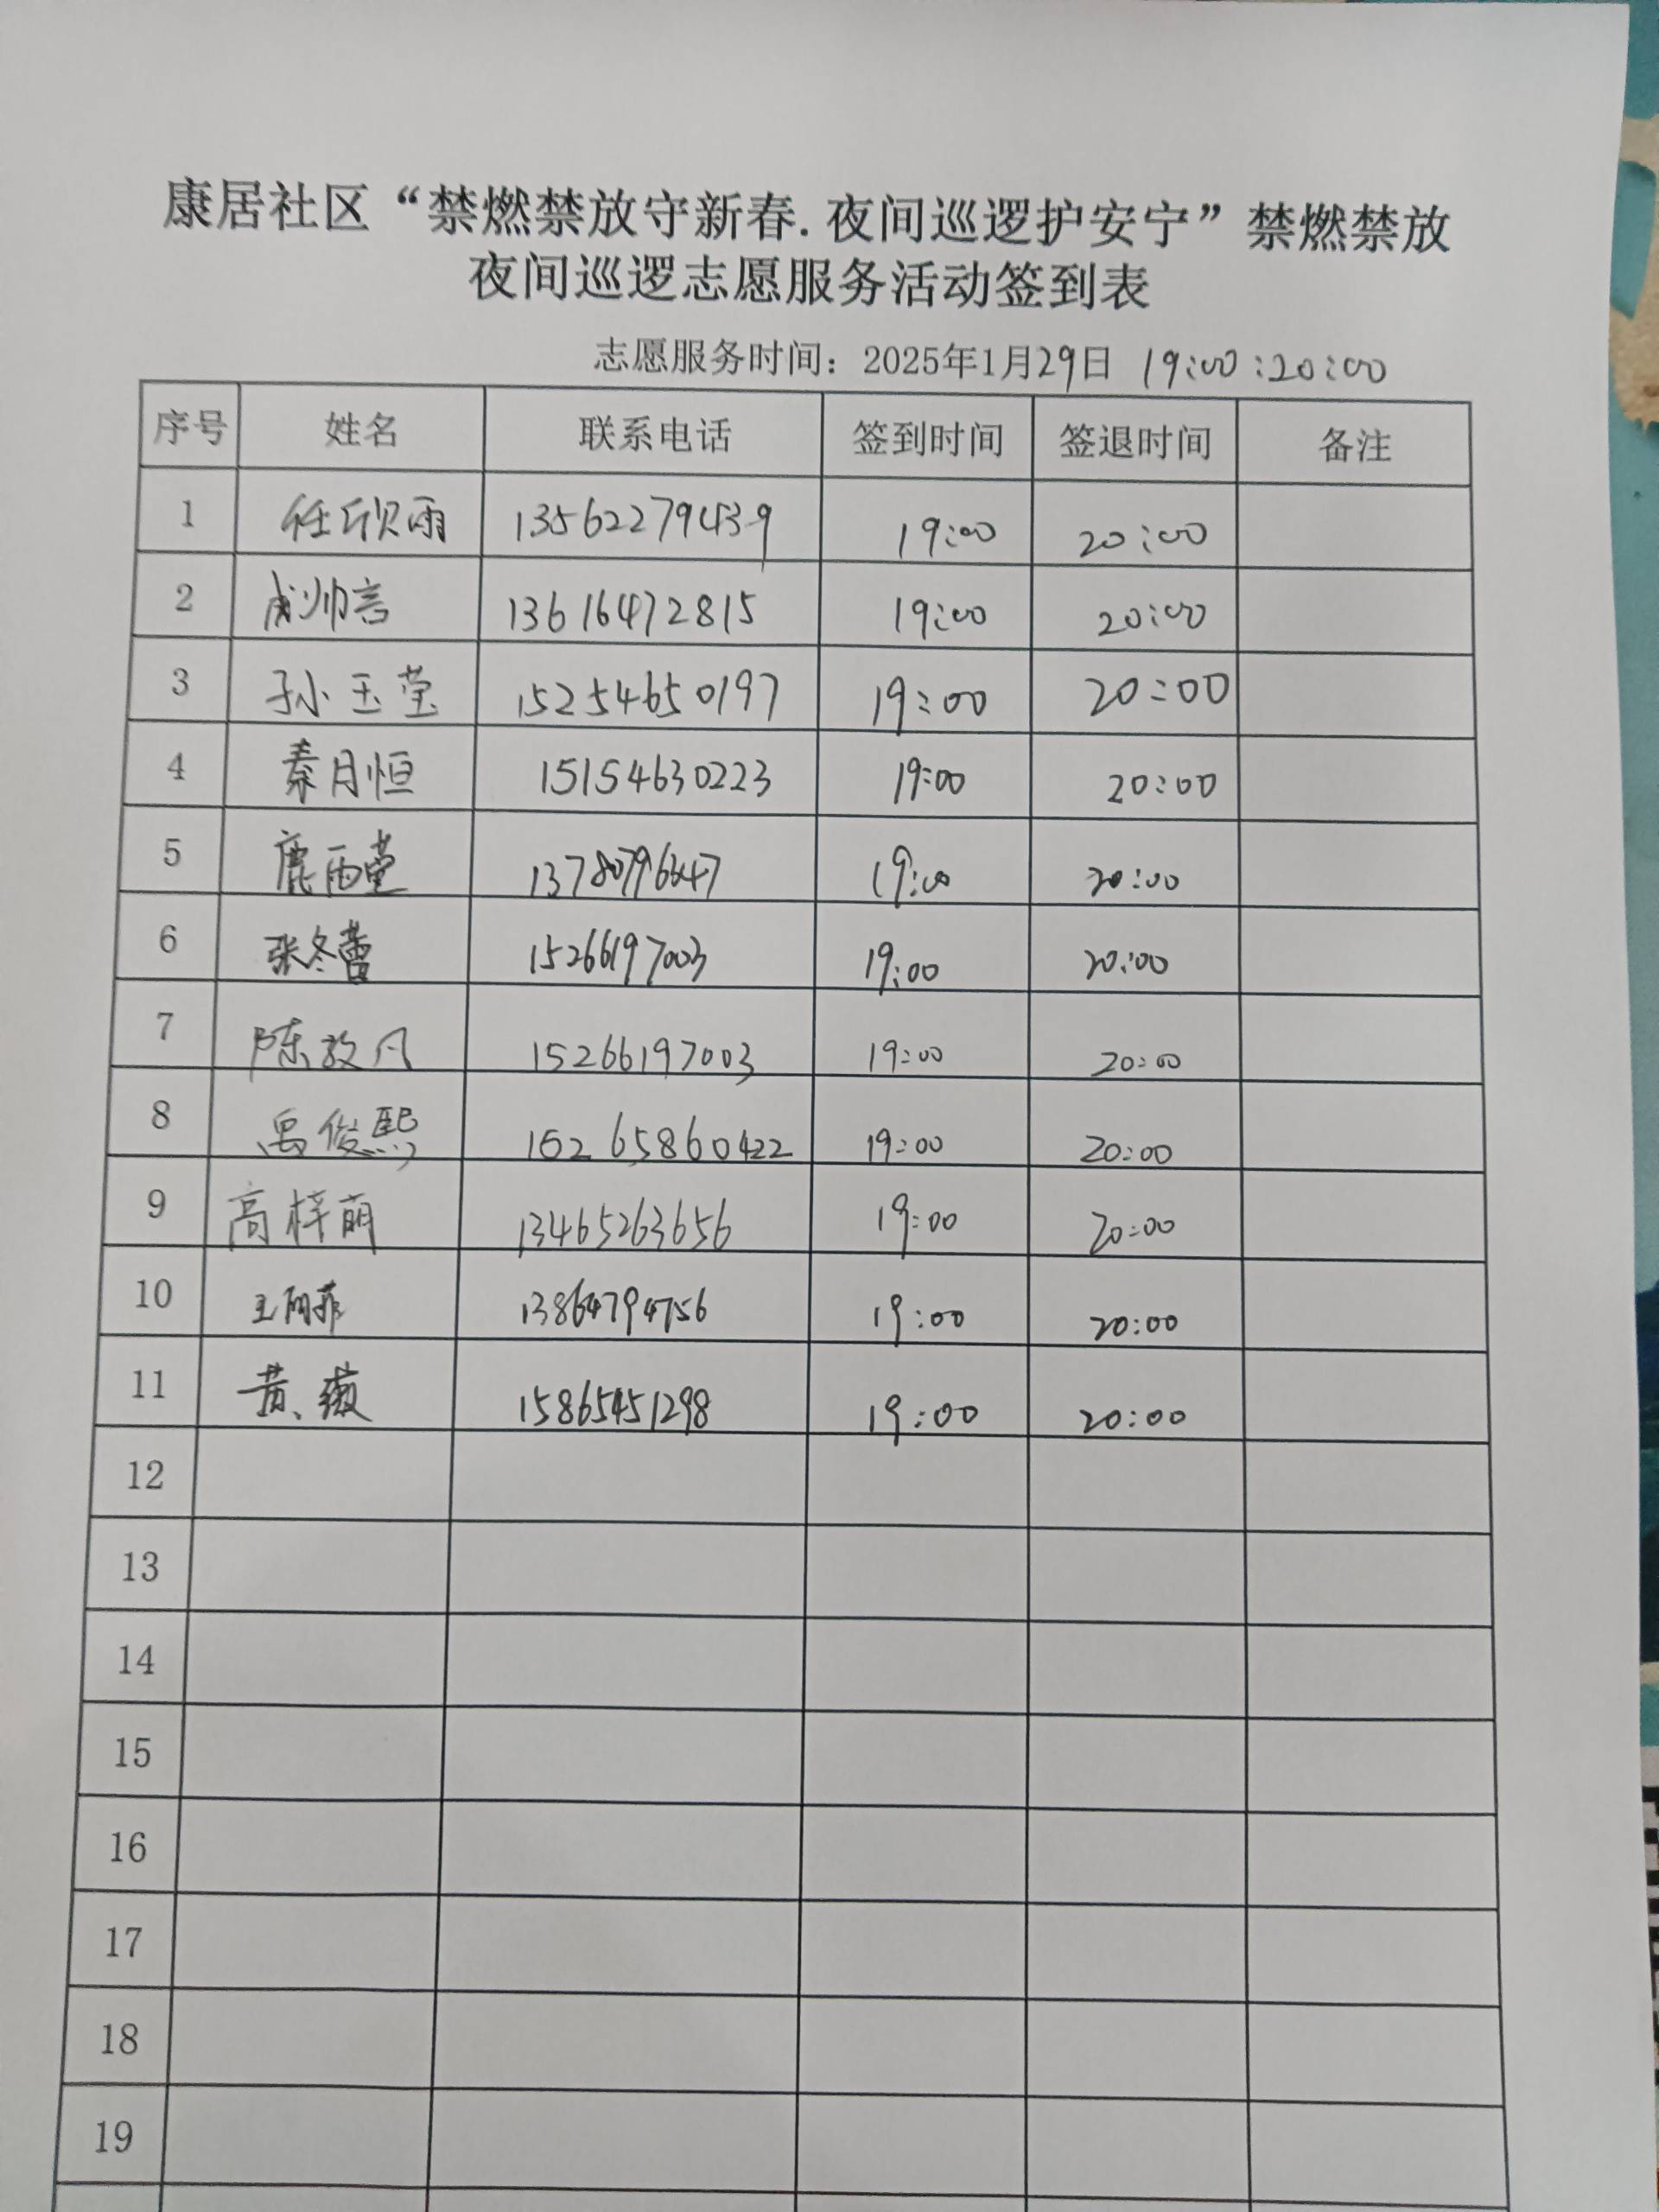 康居社区“禁燃禁放守新春.夜间巡逻护安宁”禁燃禁放
夜间巡逻志愿服务活动签到表
志愿服务时间：2025年1月29日 19:00:20:00
序号 姓名 联系电话 签到时间 签退时间 备注
1 任欣雨 13562279439 19:00 20:00
2 成帅言 13616472815 19:00 20:00
3 孙玉莹 15254650197 19:00 20:00
4 秦月恒 15154630223 19:00 20:00
5 鹿雨莹 19:00 20:00
6 张冬蕾 15266197003 19:00 20:00
7 陈放凡 15266197003 19:00 20:00
8 禹俊熙 15265860422 19:00 20:00
9 高梓萌 13465263656 19:00 20:00
10 13864794756 19:00 20:00
11 黄薇 15865451298 19:00 20:00
12
13
14
15
16
17
18
19